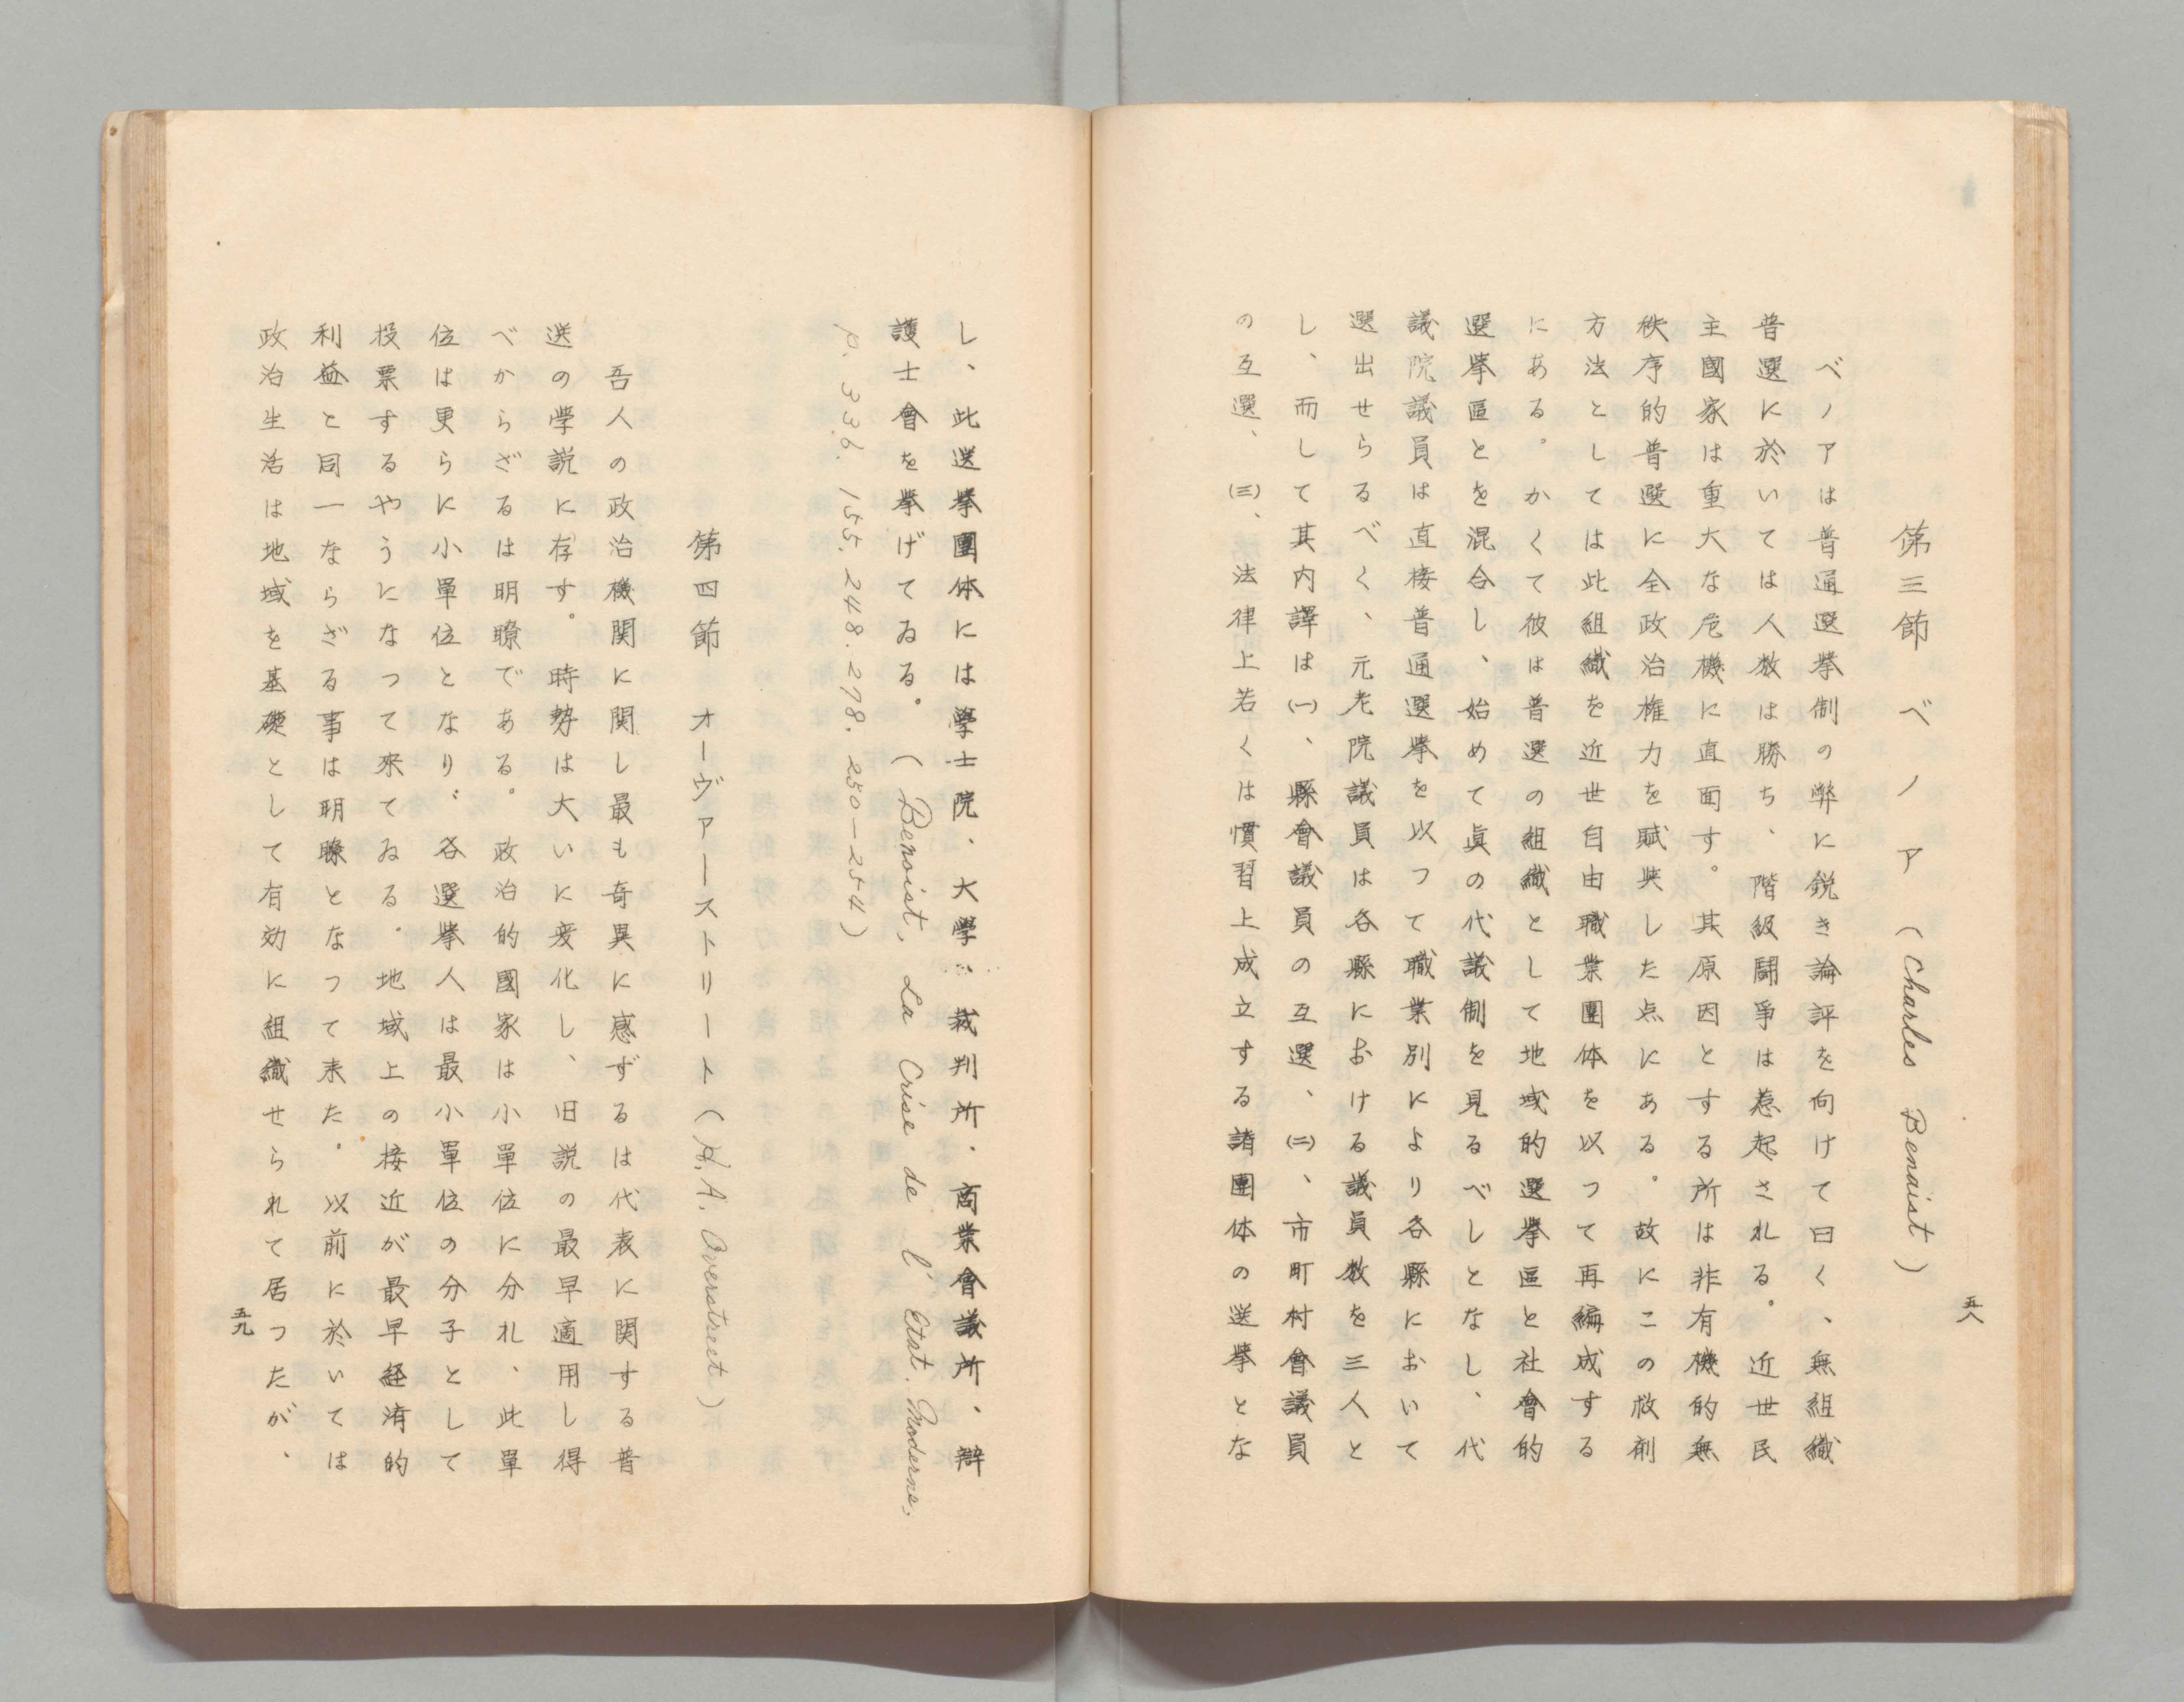 第三節　ベノア（Charles Benaist）
ベノアは普通選挙制の弊に鋭き論評を向けて曰く、無組織
普選に於いては人数は勝ち、階級鬪爭は惹起される。近世民
主國家は重大な危機に直面す。其原因とする所は非有機的無
秩序的普選に全政治権力を賦与した点にある。故にこの救剤
方法としては此組織を近世自由職業團体を以つて再編成する
にある。かくて彼は普選の組織として地域的選挙區と社會的
選挙區とを混合し、始めて眞の代議制を見るべしとなし、代
議院議員は直接普通選挙を以つて職業別により各縣において
選出せらるべく、元老院議員は各縣における議員数を三人と
し、而して其内譯は㈠、縣會議員の互選、㈡、市町村會議員
の互選、㈢、法律上若くは慣習上成立する諸團体の選挙とな
五八
し、此選挙團体には學士院．大學．裁判所．商業會議所．辯
護士會を挙げてゐる。（Benoist, La Crise de l'Etat Moderne,
p. 336. 155. 248. 278. 250—254）
第四節　オーヴァーストリート（H. A. Overstreet）
吾人の政治機関に関し最も奇異に感ずるは代表に関する普
選の學説に存す。時勢は大いに変化し、旧説の最早適用し得
べからざるは明瞭である。政治的國家は小單位に分れ、此單
位は更らに小單位となり、各選挙人は最小單位の分子として
投票するやうになつて來てゐる。地域上の接近が最早経済的
利益と同一ならざる事は明瞭となつて来た。以前に於いては
政治生活は地域を基礎として有効に組織せられて居つたが、
五九